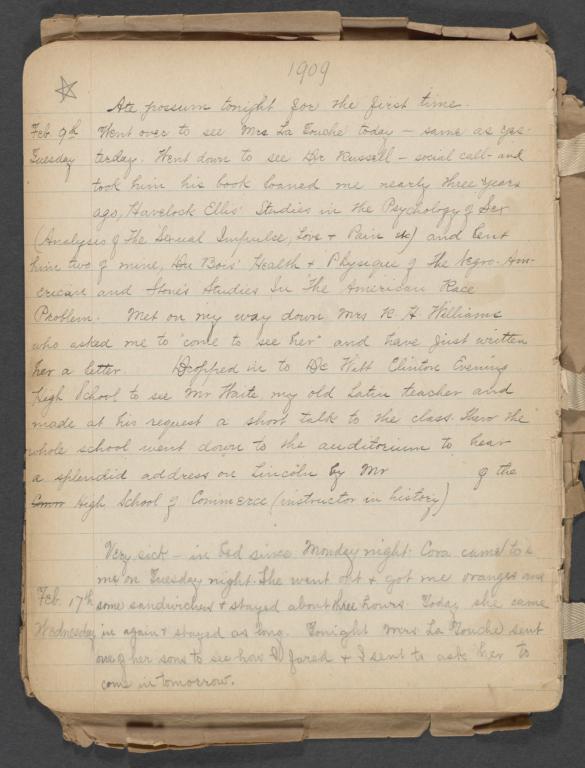 1909
Ate possum tonight for the first time.
Feb. 9th Went over to see Mrs La Touche today – same as yes-
Tuesday terday. Went down to see Dr Russell – social call – and
took him his book loaned me nearly three years
ago, Havelock Ellis' Studies in the Psychology of Sex
(Analysis of the Sexual Impulse, Love & Pain etc) and lent
him two of mine, Du Bois' Health & Physique of the Negro-Am-
erican and Stone's Studies in the American Race
Problem. Met on my way down Mrs R. H. Williams
who asked me to "come to see her" and have just written
her a letter. Dropped in to De Witt Clinton Evening
High School to see Mr Waite my old Latin teacher and
made at his request a short talk to the class. Then the
whole school went down to the auditorium to hear
a splendid address on Lincoln by Mr of the
Comm High School of Commerce (instructor in history)
Very sick – in bed since Monday night. Cora came to
me on Tuesday night. She went out & got me oranges and
Feb. 17th some sandwiches & stayed about three hours. Today she came
Wednesday in again & stayed as long. Tonight Mrs La Touche sent
one of her sons to see how I fared & I sent to ask her to
come in tomorrow.